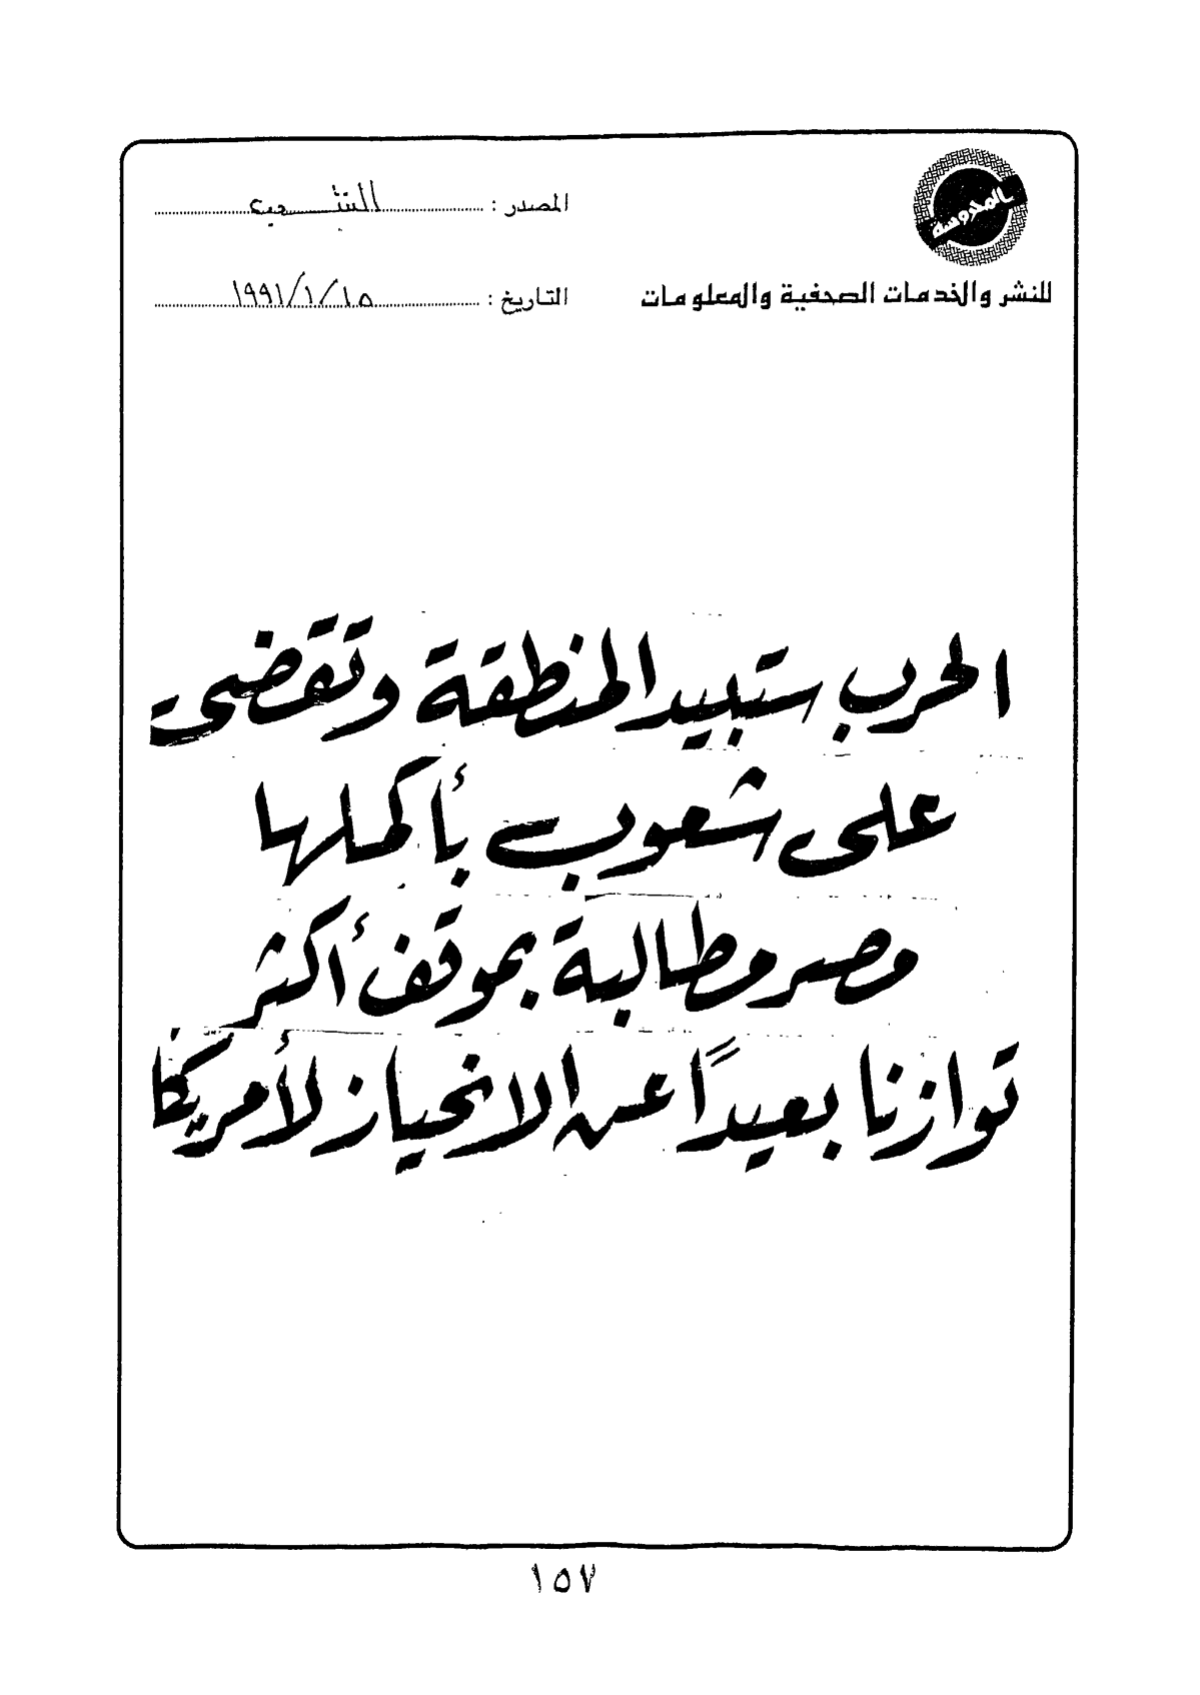 المحروسة
للنشر والخدمات الصحفية والمعلومات
المصدر : الشعب
التاريخ : ١٩٩١/١/١٥
الحرب ستبيد المنطقة وتقضى
على شعوب بأكملها
مصر مطالبة بموقف أكثر
توازنا بعيداً عن الانحياز لأمريكا
١٥٧